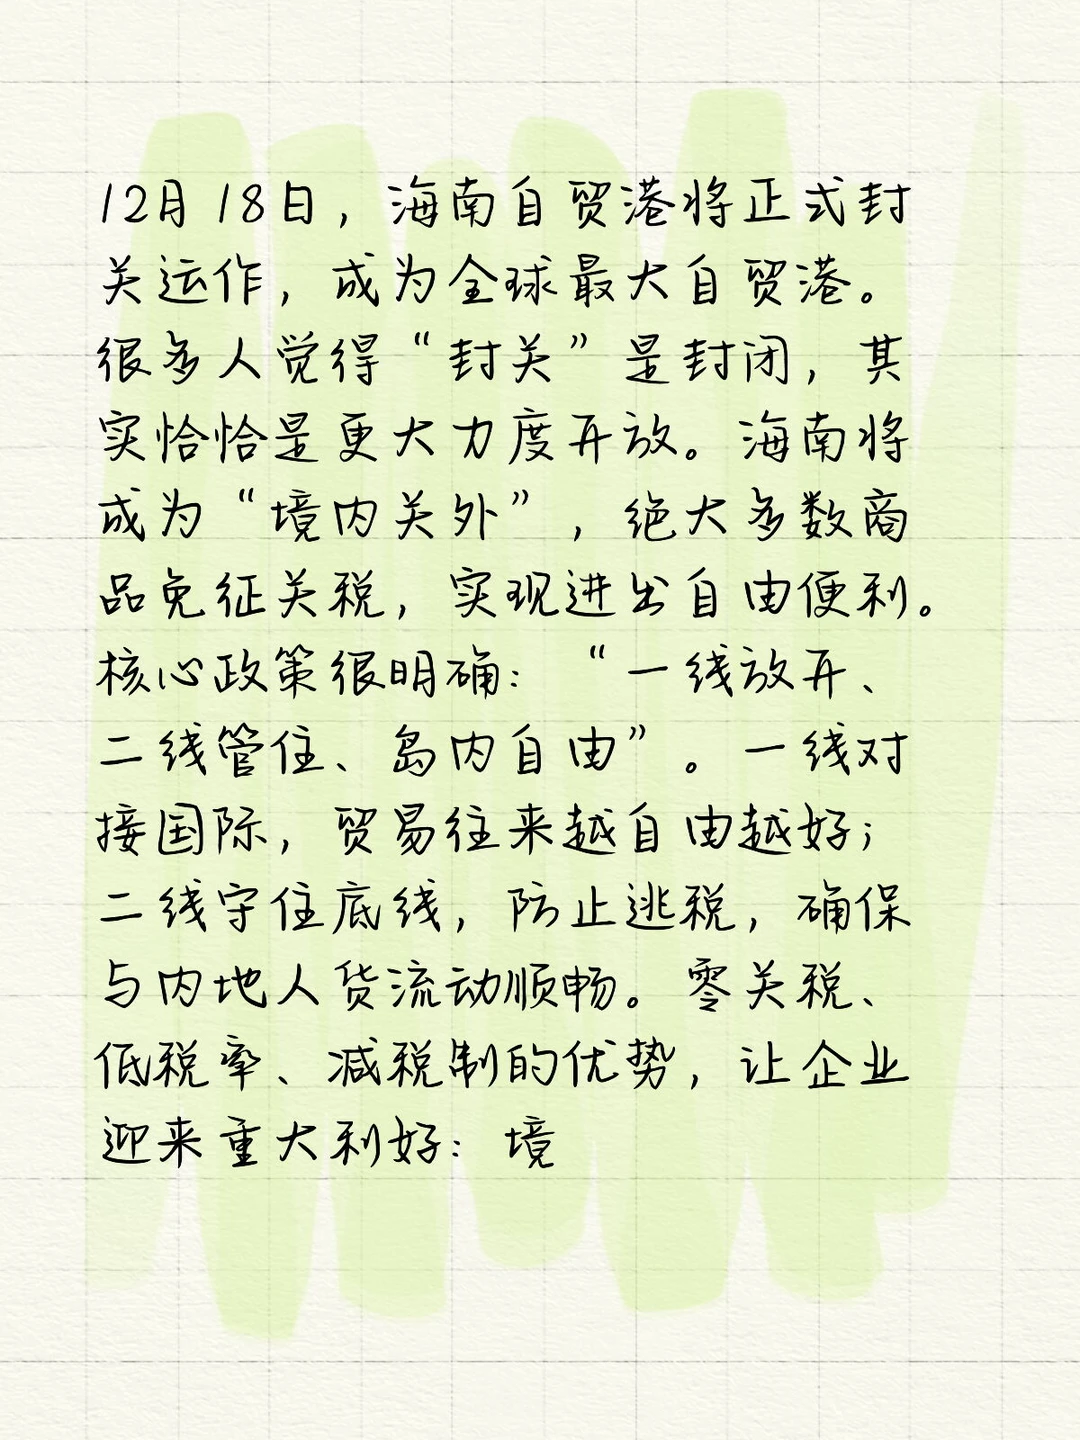 12月18日，海南自贸港将正式封
关运作，成为全球最大自贸港。
很多人觉得“封关”是封闭，其
实恰恰是更大力度开放。海南将
成为“境内关外”，绝大多数商
品免征关税，实现进出自由便利。
核心政策很明确：“一线放开、
二线管住、岛内自由”。一线对
接国际，贸易往来越自由越好；
二线守住底线，防止逃税，确保
与内地人货流动顺畅。零关税、
低税率、减税制的优势，让企业
迎来重大利好：境